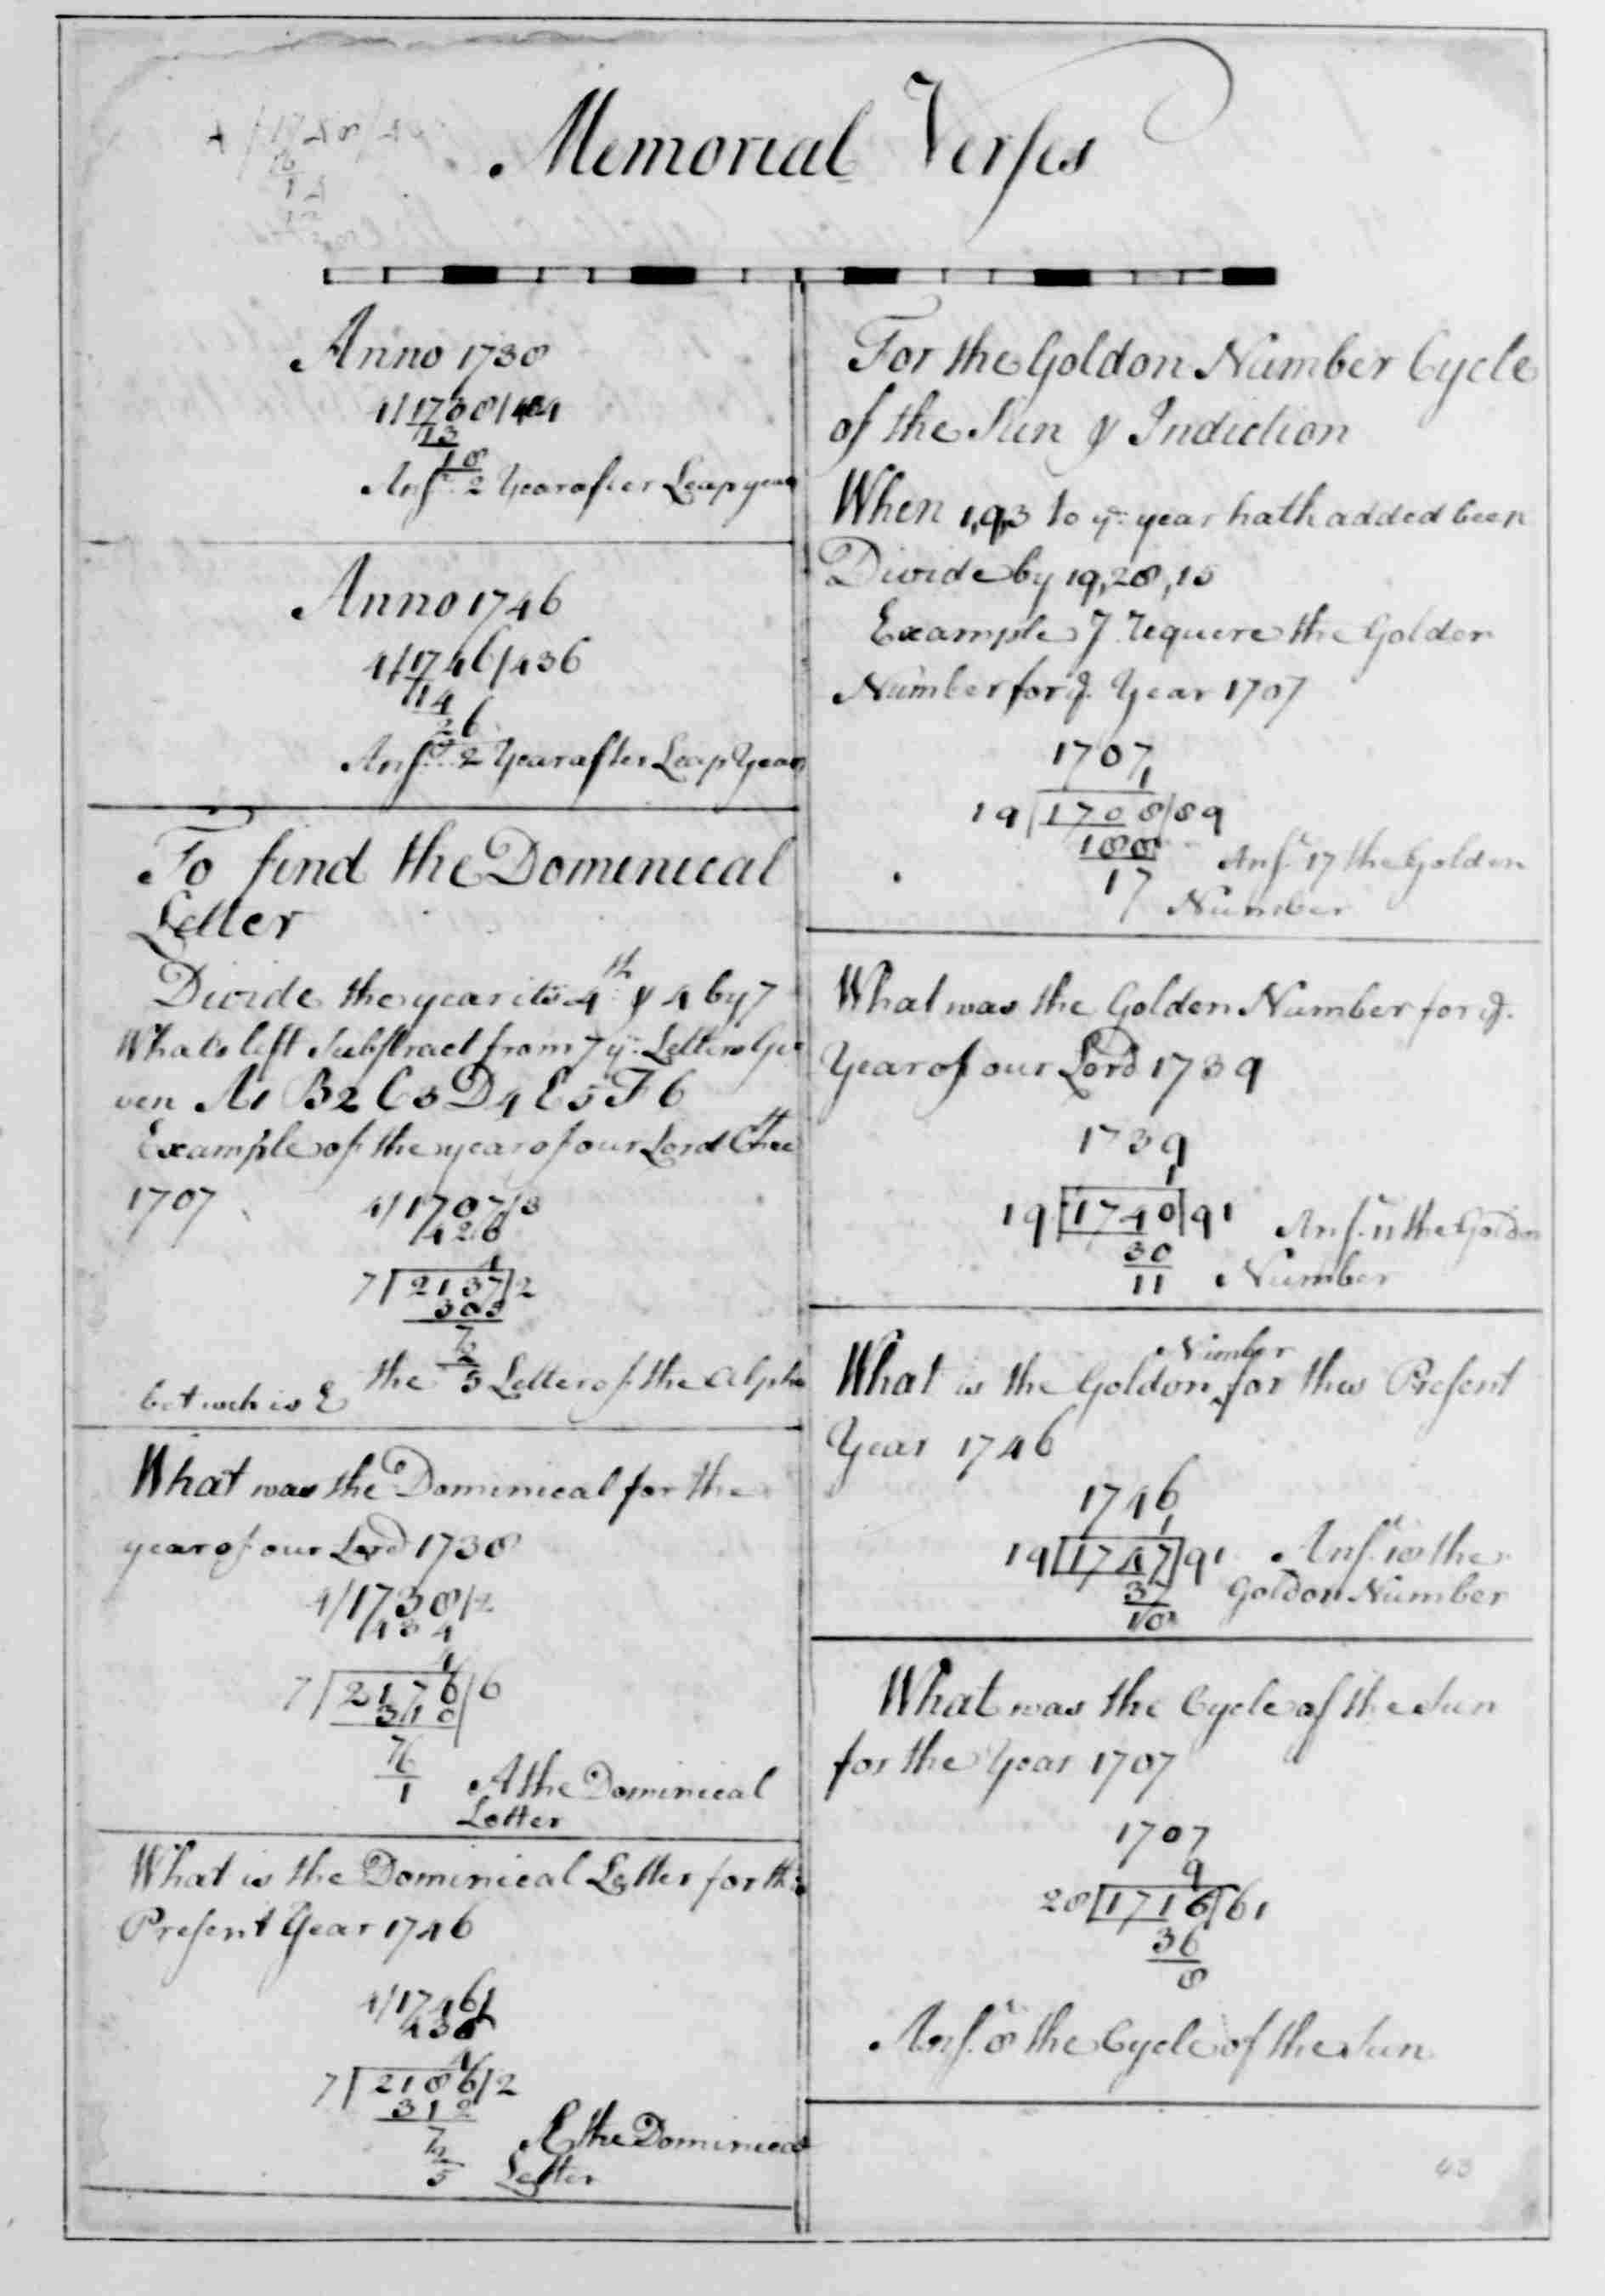 Memorial Verses
Anno 1738
4/1738/434
13
18
Ansr. 2 Year after Leap year
Anno 1746
4/1746/436
14
26
Ansr. 2 Year after Leap Year
To find the Domenical
Letter
Divide the year its 4th & 4 by 7
Whats left Substract from 7 ye. Letters Gi
ven A1 B2 C3 D4 E5 F6
Example of the year of our Lord
1707 4/1707/3
426
4
7/2137/2
305
7
2
the 5 Letter of the Alpha
bet wch is E
What was the Dominical for the
year of our Lord 1738
4/1738/2
434
4
7/2176/6
310
7
6
1 A the Dominical
Letter
What is the Dominical Letter for this
Present Year 1746
4/1746/
436
4
7/2186/2
312
7
2
5
E the Dominical
Letter
For the Goldon Number Cycle
of the Sun & Indiction
When 1,9,3 to ye. year hath added been
Divide by 19,28,15
Example J requere the Golden
Number for ye. Year 1707
1707
1
19/1708/89
188
17
Ansr. 17 the Golden
Number
What was the Golden Number for ye.
Year of our Lord 1739
1739
1
19/1740/91
30
11
Ansr. 11 the Goldon
Number
Number
What is the Goldon ‸ for this Present
Year 1746
1746
1
19/1747/91
37
18
Ansr. 18 the
Goldon Number
What was the Cycle of the Sun
for the Year 1707
1707
9
28/1716/61
36
8
Ansr. 8 the Cycle of the Sun
43